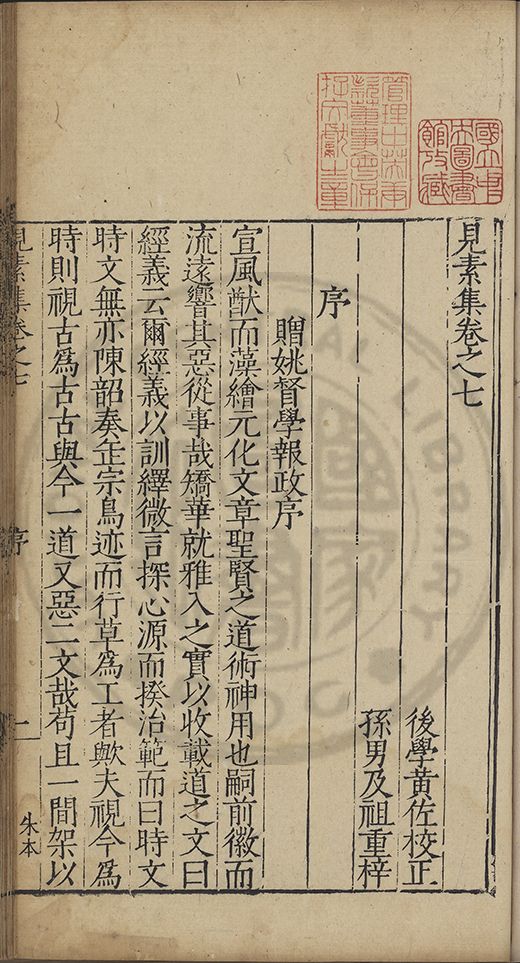 國立中
央圖書
館攷藏
管理中英庚
款董事會保
存文獻之章
見素集卷之七
後學黃佐校正
孫男及祖重梓
序
贈姚督學報政序
宣風猷而藻繪元化文章聖賢之道術神用也嗣前徽而
流遠響其惡從事哉矯華就雅入之實以收載道之文曰
經義云爾經義以訓繹微言探心源而揆治範而曰時文
時文無亦陳韶奏缶宗鳥迹而行草爲工者歟夫視今爲
時則視古爲古古與今一道又惡二文哉苟且一間架以
見素集卷之七
序
一
朱本